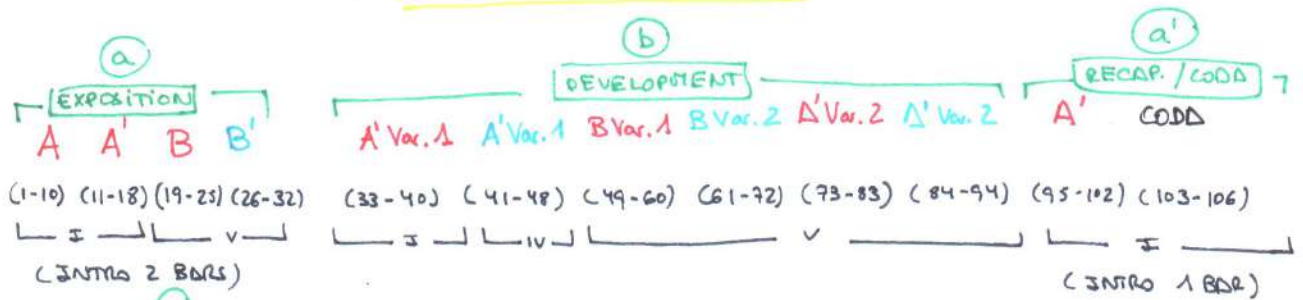 a b a'
EXPOSITION DEVELOPMENT RECAP. / CODA
A A' B B' A' Var. 1 A' Var. 1 B Var. 1 B Var. 2 A' Var. 2 A' Var. 2 A' CODA
(1-10) (11-18) (19-25) (26-32) (33-40) (41-48) (49-60) (61-72) (73-83) (84-94) (95-102) (103-106)
I V I IV V I
(INTRO 2 BARS) (INTRO 1 BAR)